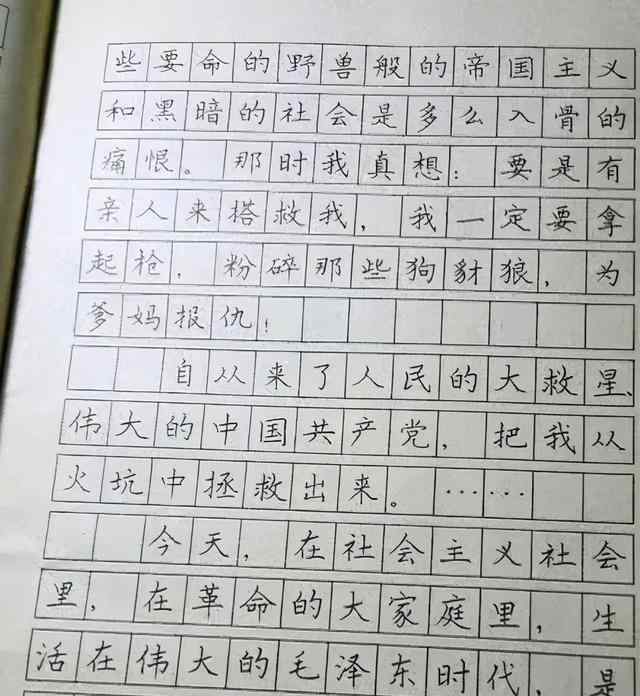 些要命的野兽般的帝国主义
和黑暗的社会是多么入骨的
痛恨。那时我真想：要是有
亲人来搭救我，我一定要拿
起枪，粉碎那些狗豺狼，为
爹妈报仇！
自从来了人民的大救星、
伟大的中国共产党，把我从
火坑中拯救出来。……
今天，在社会主义社会
里，在革命的大家庭里，生
活在伟大的毛泽东时代，是